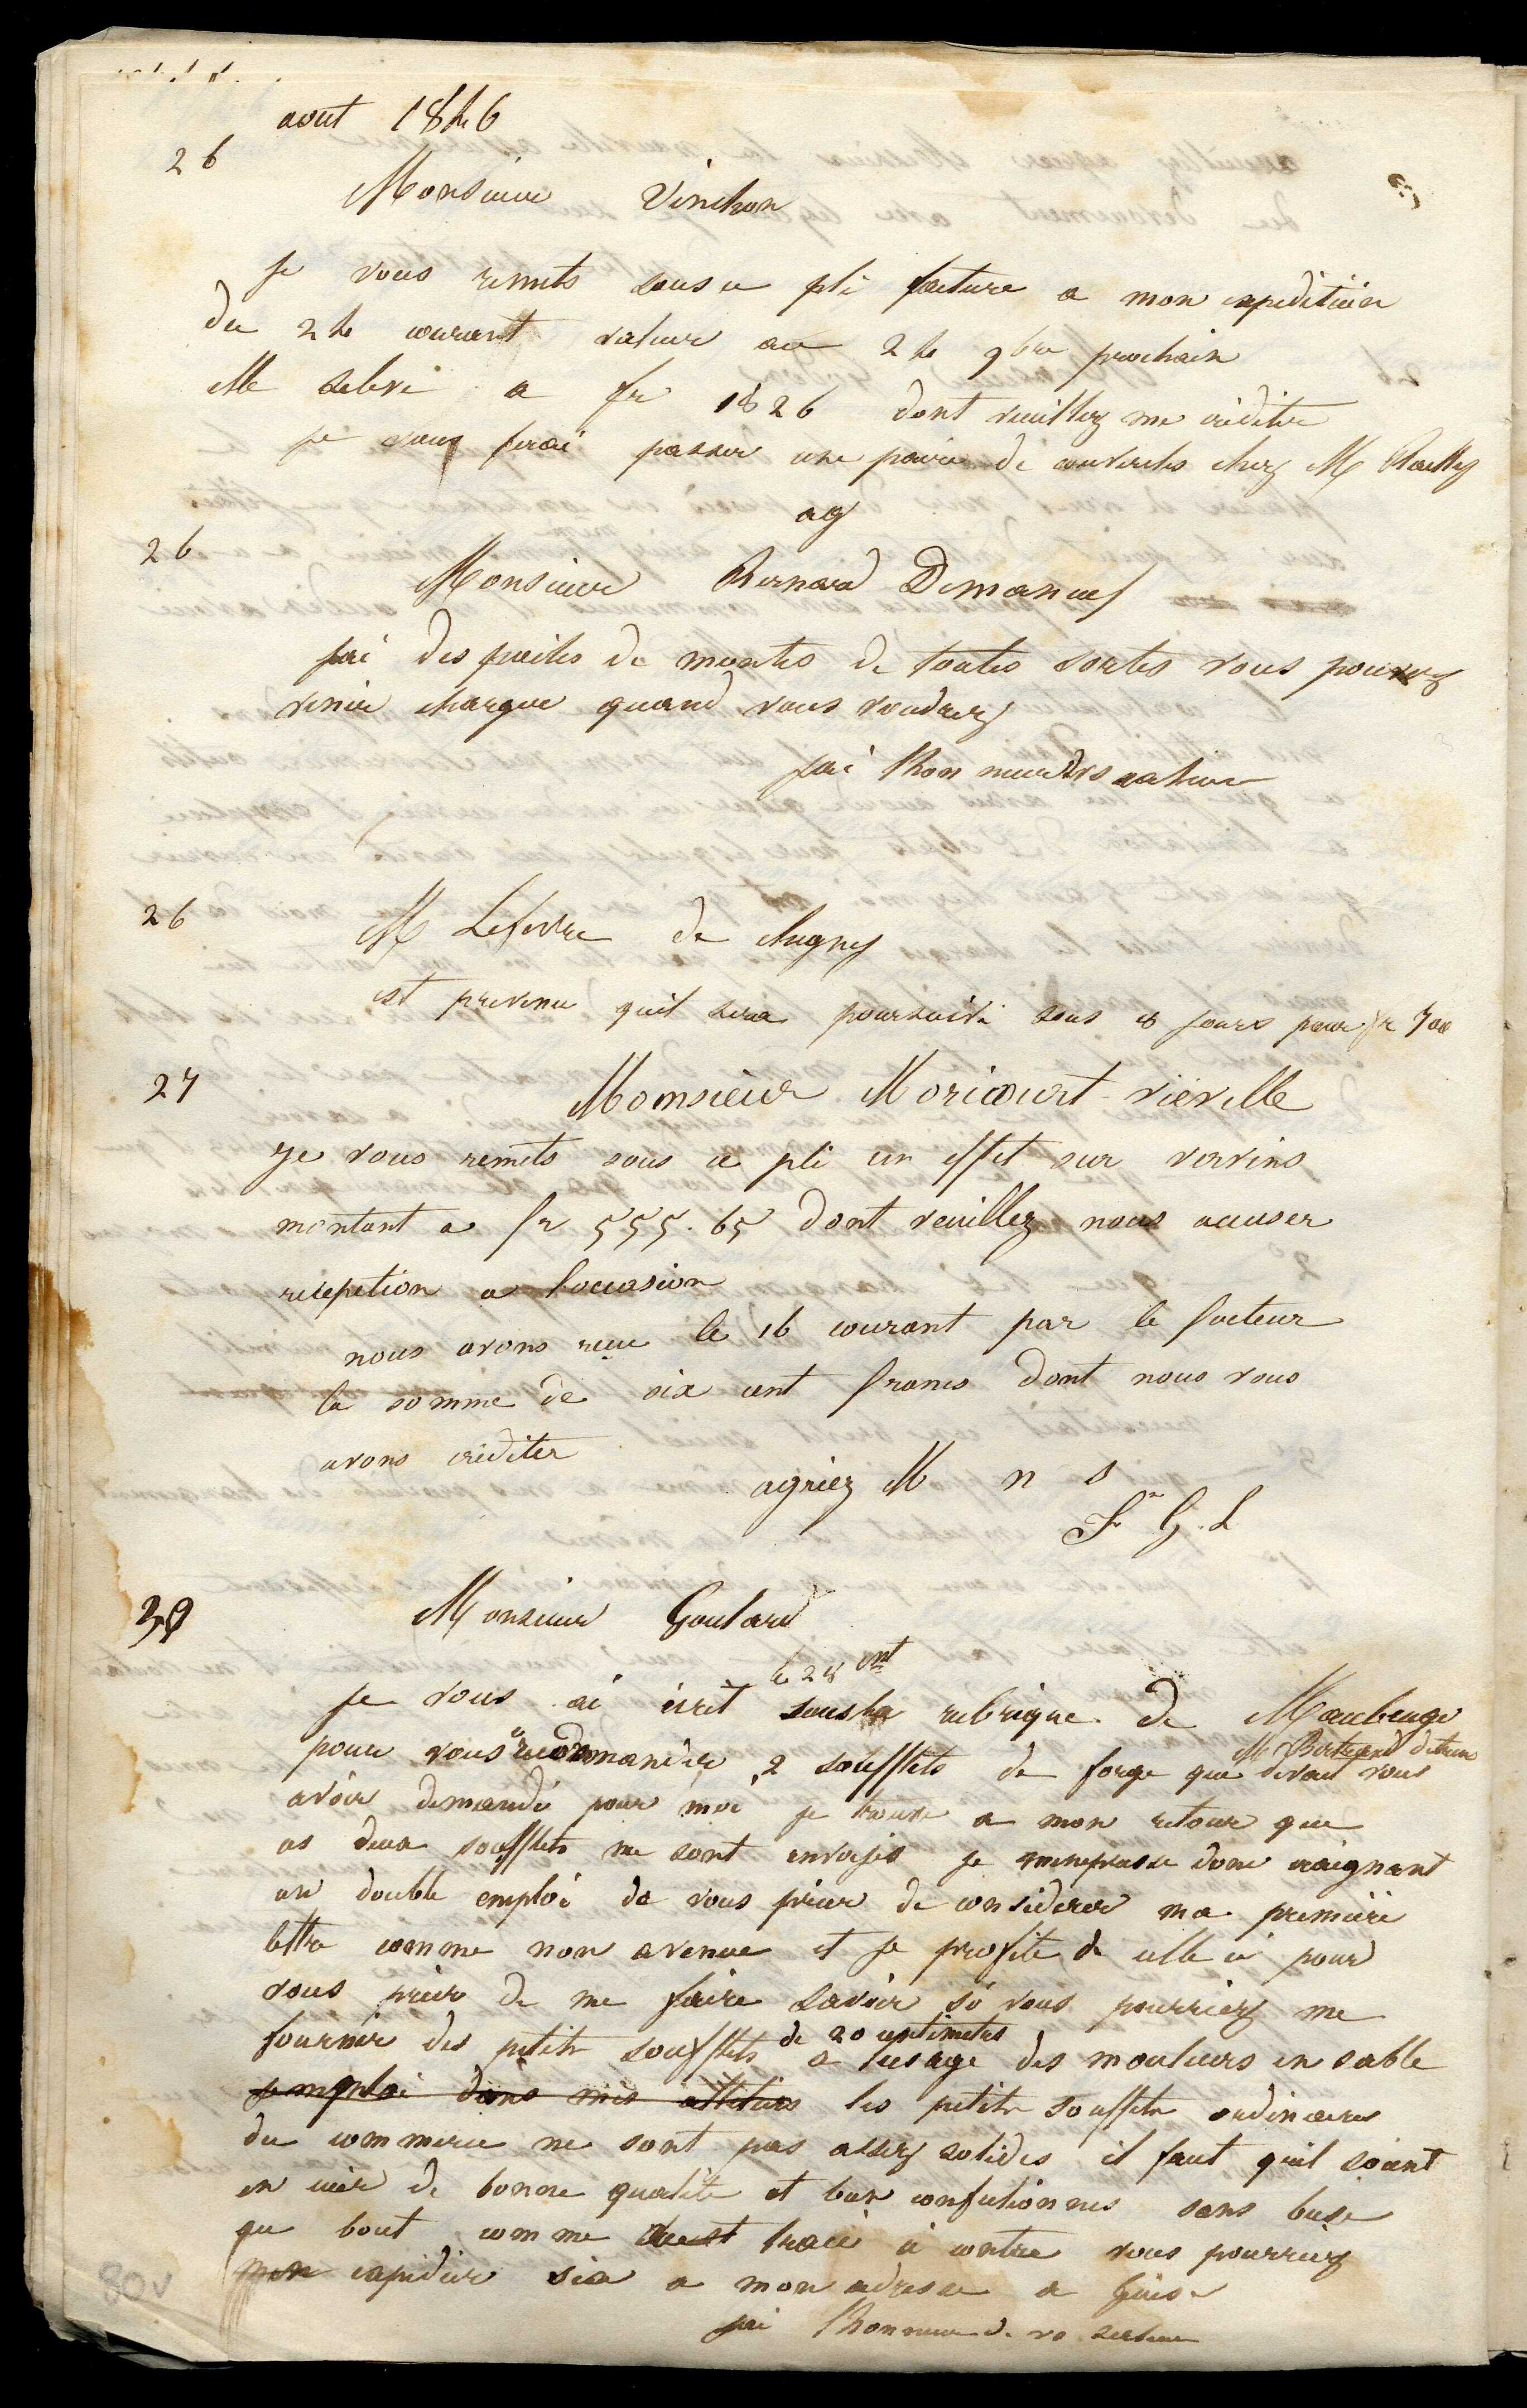 aout 1846
26
Monsieur Vinchon
Je vous remets sous ce pli facture a mon expedition
du 24 courant valeur au 24 9bre prochain
Elle seleve a fr 1826 dont veuillez me crediter
je vous ferai passer une paire de couvercles chez M
ag
26
Monsieur Bernard Demaneuf
jai des poiles de montés de toutes sortes vous pouvez
venir charger quand vous voudrez
jai lhonneur de vs saluer
26
M Lefevre de Chigny
est prevenu quil sera poursuivi sous 8 jours pour fr 700
27
Momsieur Moricourt-vieville
Je vous remets sous ce pli un effet sur vervins
montant a fr 555.65 dont veuillez nous accuser
reception a loccasion
nous avons recu le 16 courant par le facteur
la somme de six cent francs dont nous vous
avons crediter
agriez M n s
G.L
30
Monsieur Goulard
le 28 cnt
Je vous ai écrit sous la rubrique de Maubeuge
pour vous recommander 2 soufflets de forge que M devait vous
avoir demandé pour moi je trouve a mon retour que
ces deux soufflets me sont envoyés je mempresse donc craignant
un double emploi de vous prier de considerer ma premiere
lettre comme non avenue et je profite de celle ci pour
vous prier de me faire savoir si vous pourriez me
fournir des petits soufflets de 20 centimetres a lusage des mouleurs en sable
jemploi dans mes atteliers les petits soufflets ordinaires
du commerce ne sont pas assez solides il faut quil soient
en cuir de bonne qualité et bien confectionnes sans buse
au bout comme tracé ci contre vous pourriez
men expedier six a mon adresse a Guise
jai lhonneur de vs saluer
80v